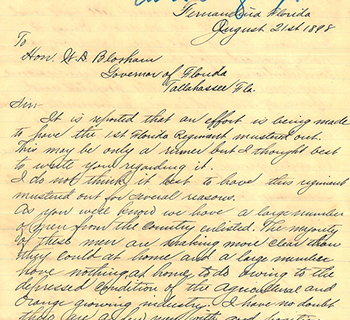 Fernandina Florida
August 21st 1898
To
Hon. W. D. Bloxham
Governor of Florida
Tallahassee Fla.
Sir:
It is reported that an effort is being made
to have the 1st Florida Regiment musterd out.
This may be only a rumer but I thought best
to write you regarding it.
I do not think it best to have this regiment
musterd out for several reasons.
As you well know we have a large number
of men from the country enlisted. The majority
of these men are making more clear than
they could at home and a large number
have nothing at home to do owing to the
depressed condition of the agricultural and
Orange growing industry. I have no doubt
there are a few men with good